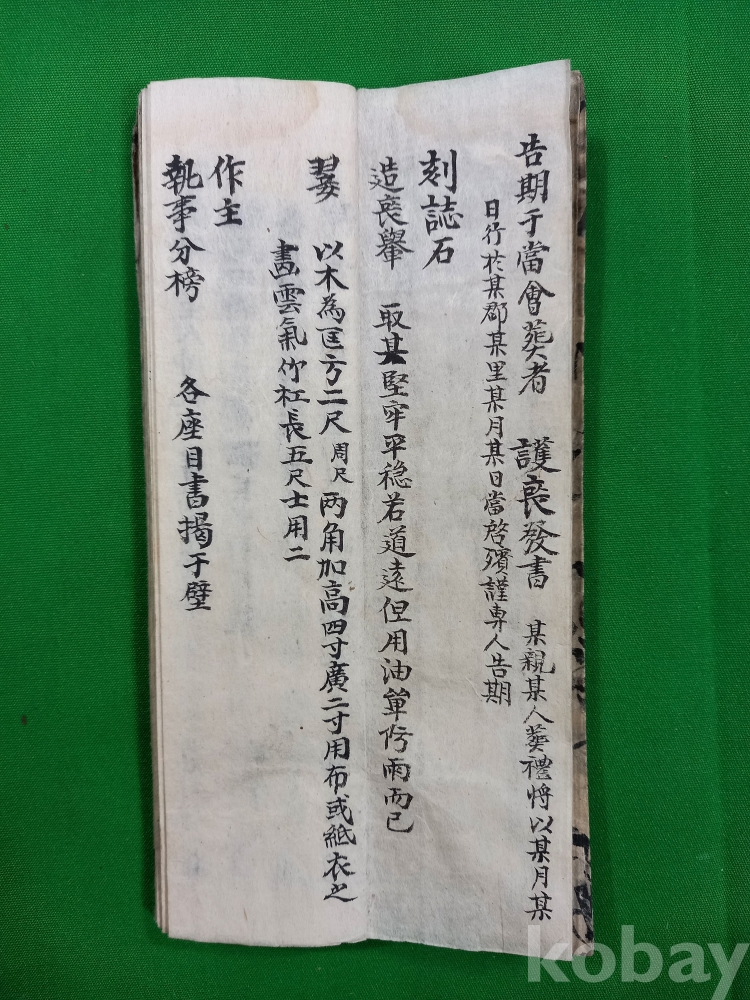 告期于當會葬者 護喪發書 某親某人葬禮將以某月某
日行於某郡某里某月某日當啓殯謹專人告期
刻誌石
造喪轝 取其堅牢平穩若道遠但用油單備雨而已
翣 以木為匡方二尺周尺兩角加高四寸廣二寸用布或紙衣之
畵雲氣竹杠長五尺士用二
作主
執事分榜 各座目書揭于壁
kobay